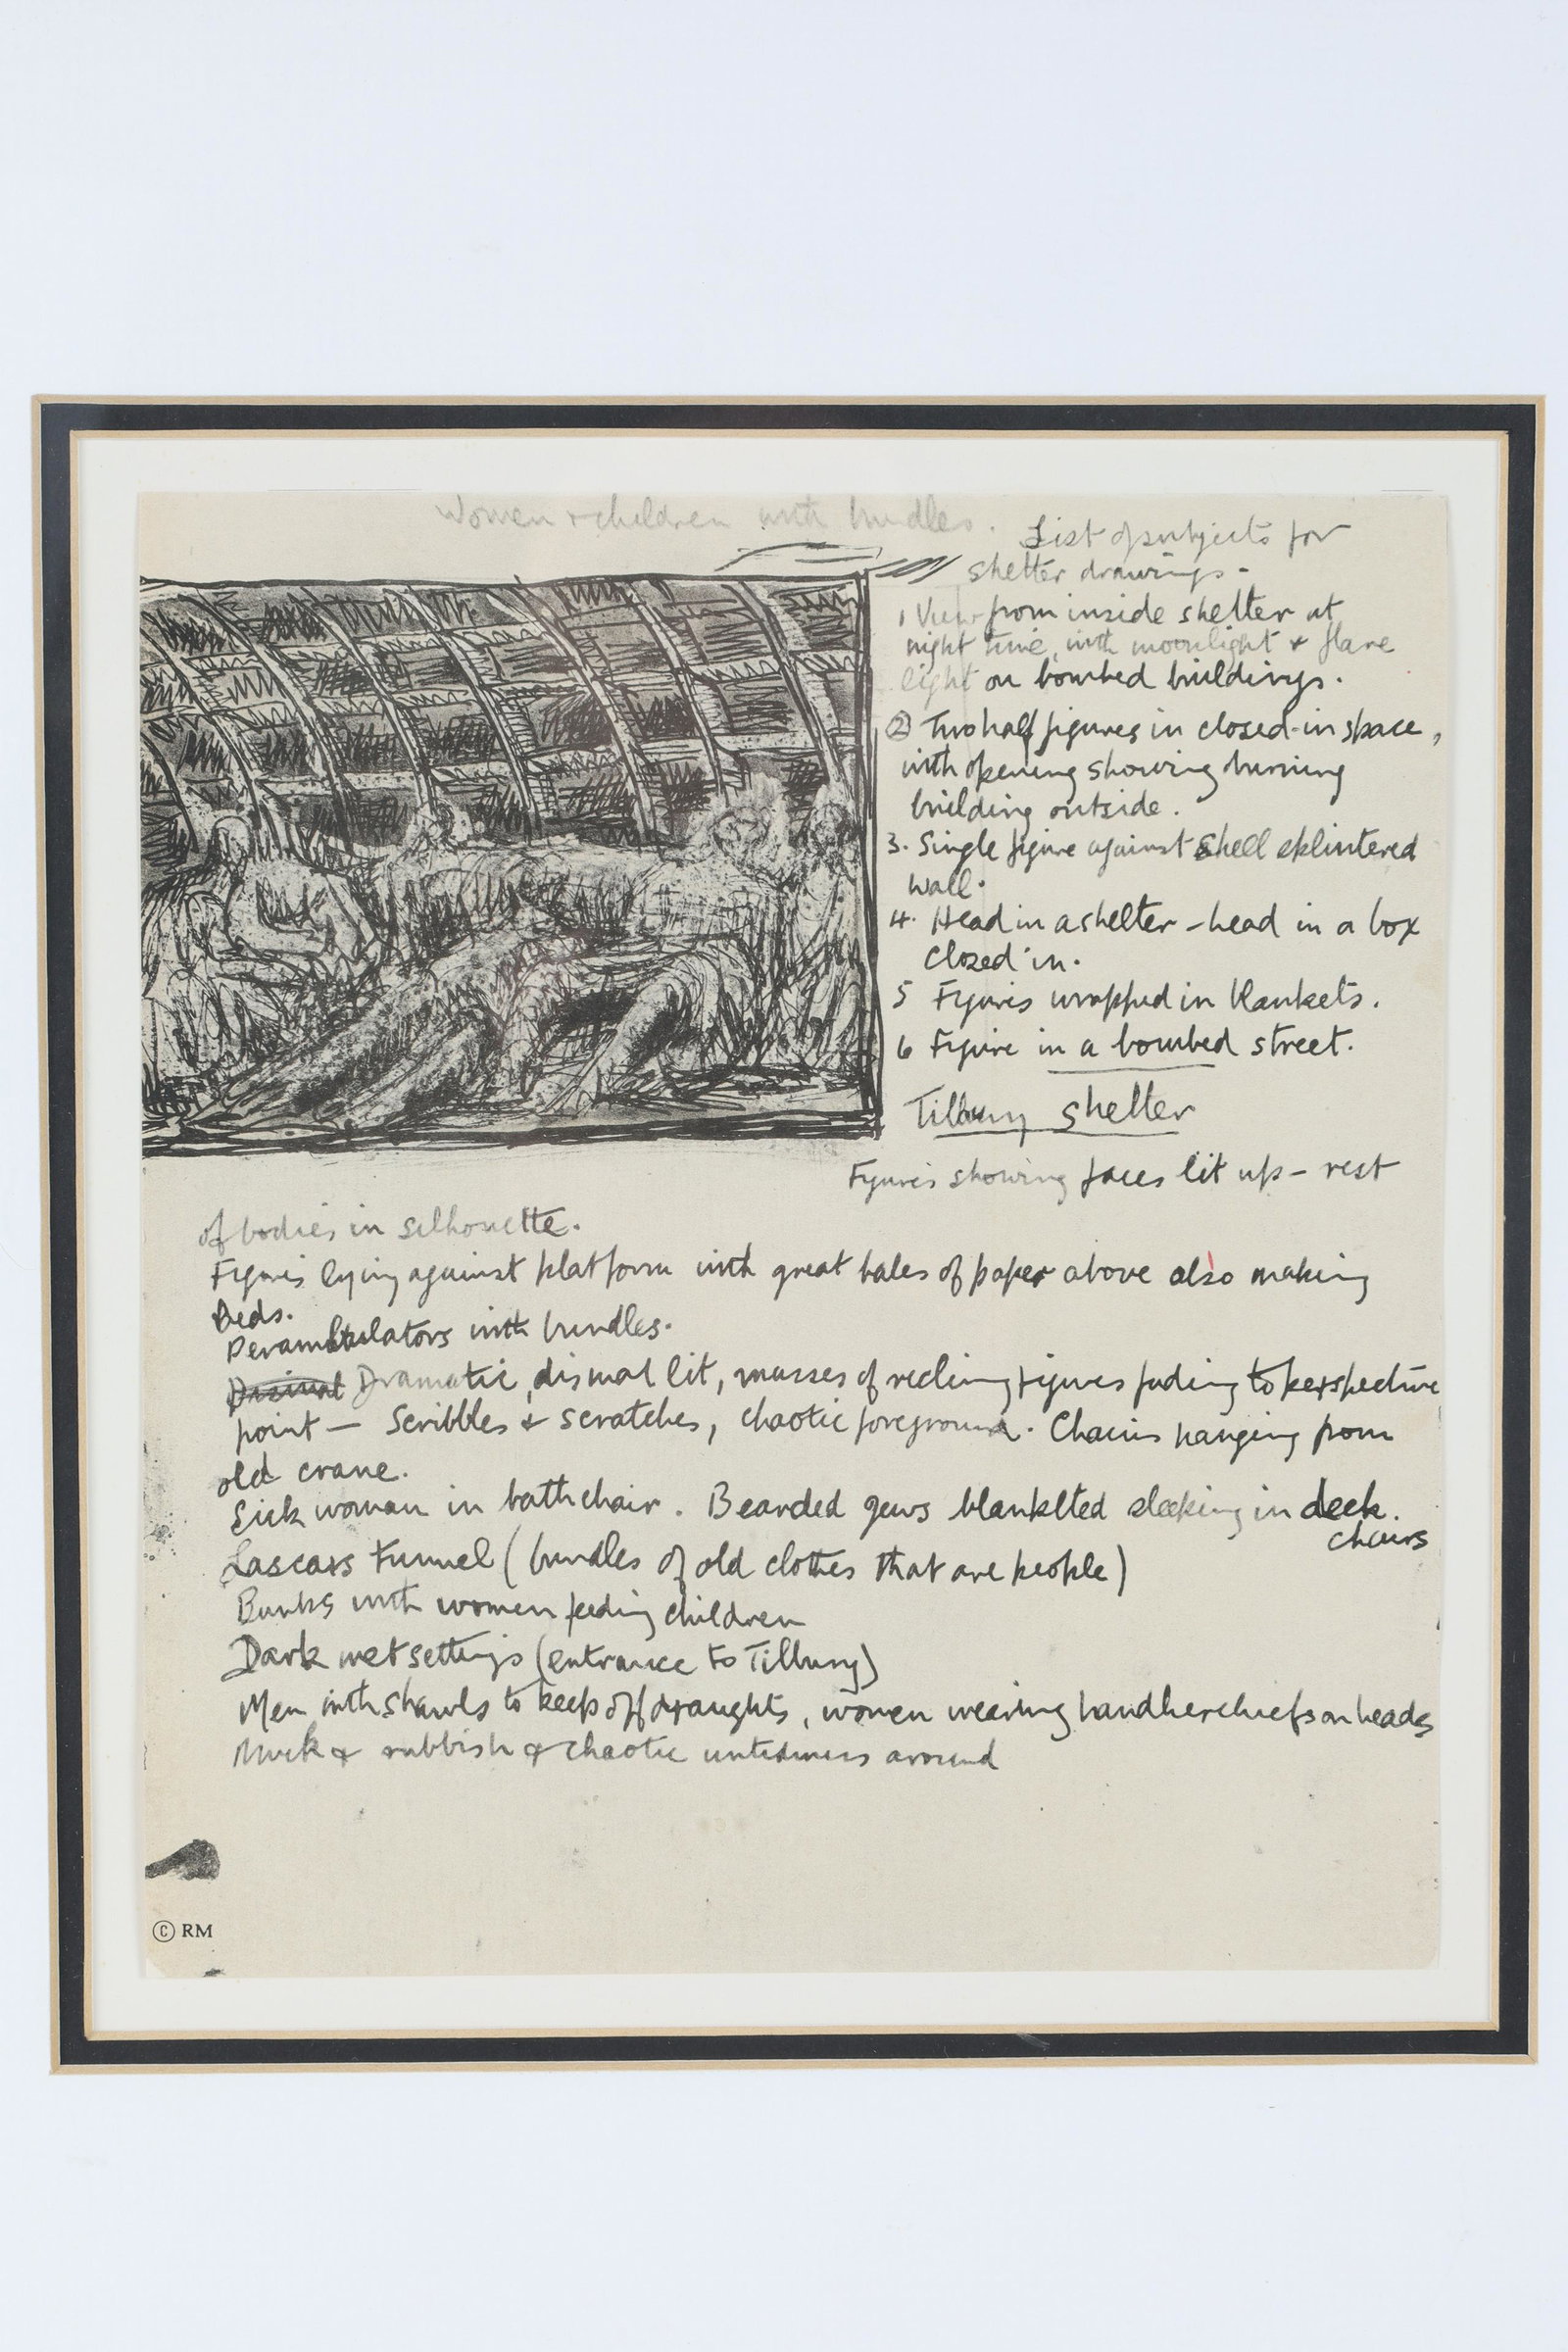 Women & children with bundles.
List of subjects for
shelter drawings -
1 View from inside shelter at
night time, with moonlight & flare
light on bombed buildings.
② Two half figures in closed-in space,
with opening showing burning
building outside.
3. Single figure against shell splintered
wall.
4. Head in a shelter - head in a box
closed in.
5 Figures wrapped in blankets.
6 Figure in a bombed street.
Tilbury shelter
Figures showing faces lit up - rest
of bodies in silhouette.
Figures lying against platform with great bales of paper above also making
beds.
Perambulators with bundles.
Dramatic, dismal lit, masses of reclining figures fading to perspective
point — Scribbles & scratches, chaotic foreground. Chains hanging from
old crane.
Sick woman in bathchair. Bearded Jews blanketed sleeping in deck
chairs
Lascars Tunnel (bundles of old clothes that are people)
Bunks with women feeding children
Dark wet settings (entrance to Tilbury)
Men with shawls to keep off draughts, women wearing handkerchiefs on heads
Muck & rubbish & chaotic untidiness around
© RM